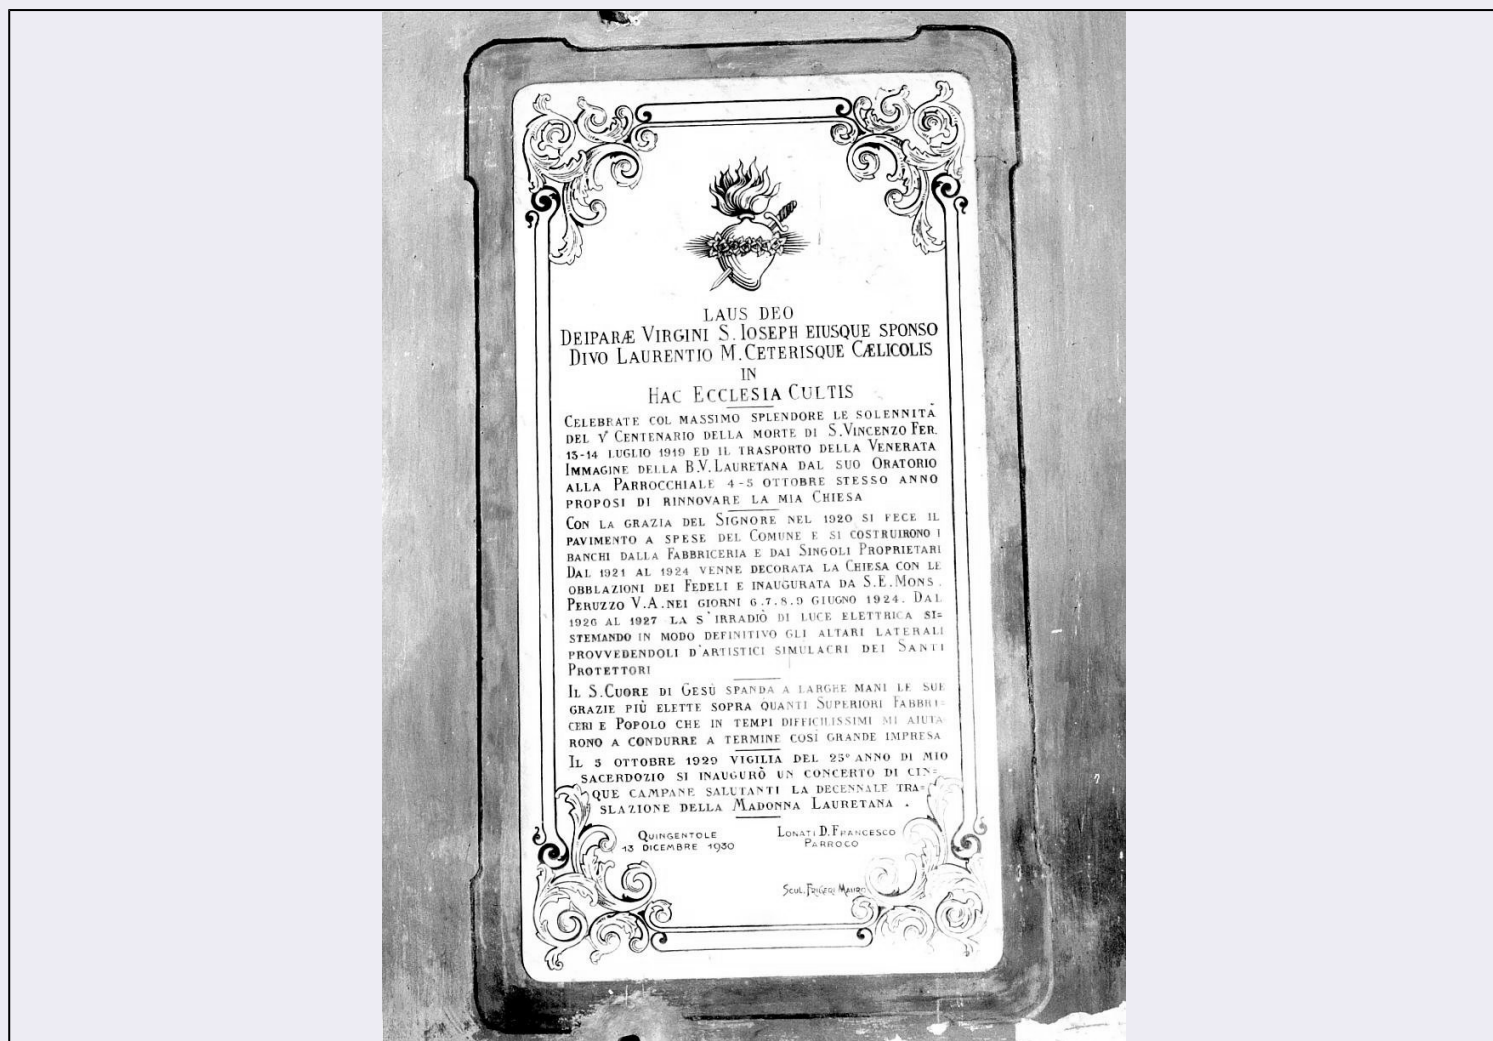 LAUS DEO
DEIPARÆ VIRGINI S. IOSEPH EIUSQUE SPONSO
DIVO LAURENTIO M. CETERISQUE CÆLICOLIS
IN
HAC ECCLESIA CULTIS
CELEBRATE COL MASSIMO SPLENDORE LE SOLENNITÀ
DEL V° CENTENARIO DELLA MORTE DI S. VINCENZO FER.
13-14 LUGLIO 1919 ED IL TRASPORTO DELLA VENERATA
IMMAGINE DELLA B.V. LAURETANA DAL SUO ORATORIO
ALLA PARROCCHIALE 4-5 OTTOBRE STESSO ANNO
PROPOSI DI RINNOVARE LA MIA CHIESA
CON LA GRAZIA DEL SIGNORE NEL 1920 SI FECE IL
PAVIMENTO A SPESE DEL COMUNE E SI COSTRUIRONO I
BANCHI DALLA FABBRICERIA E DAI SINGOLI PROPRIETARI
DAL 1921 AL 1924 VENNE DECORATA LA CHIESA CON LE
OBBLAZIONI DEI FEDELI E INAUGURATA DA S.E. MONS.
PERUZZO V.A. NEI GIORNI 6.7.8.9 GIUGNO 1924. DAL
1926 AL 1927 LA S'IRRADIÒ DI LUCE ELETTRICA SI=
STEMANDO IN MODO DEFINITIVO GLI ALTARI LATERALI
PROVVEDENDOLI D'ARTISTICI SIMULACRI DEI SANTI
PROTETTORI
IL S. CUORE DI GESÙ SPANDA A LARGHE MANI LE SUE
GRAZIE PIÙ ELETTE SOPRA QUANTI SUPERIORI FABBRI=
CERI E POPOLO CHE IN TEMPI DIFFICILISSIMI MI AIUTA
RONO A CONDURRE A TERMINE COSÌ GRANDE IMPRESA
IL 5 OTTOBRE 1929 VIGILIA DEL 25° ANNO DI MIO
SACERDOZIO SI INAUGURÒ UN CONCERTO DI CIN=
QUE CAMPANE SALUTANTI LA DECENNALE TRA=
SLAZIONE DELLA MADONNA LAURETANA.
QUINGENTOLE
13 DICEMBRE 1930
LONATI D. FRANCESCO
PARROCO
SCUL. FRIGERI MAURO